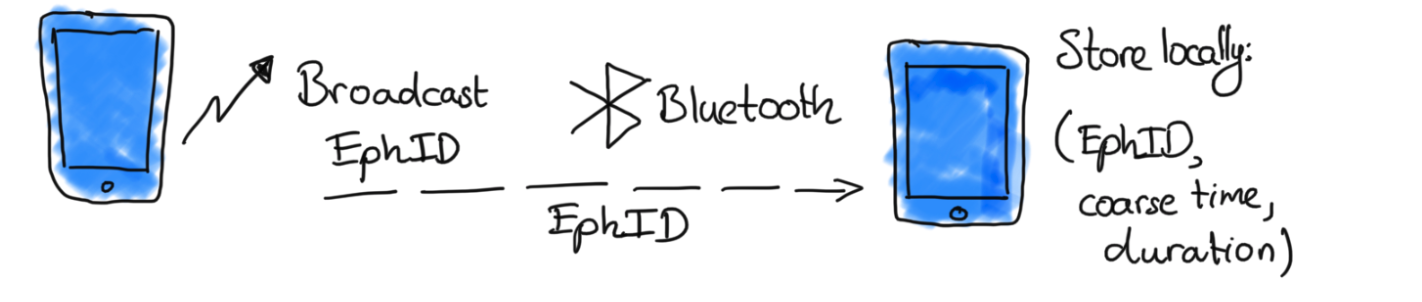 Broadcast
EphID
Bluetooth
EphID
Store locally:
(EphID,
coarse time,
duration)